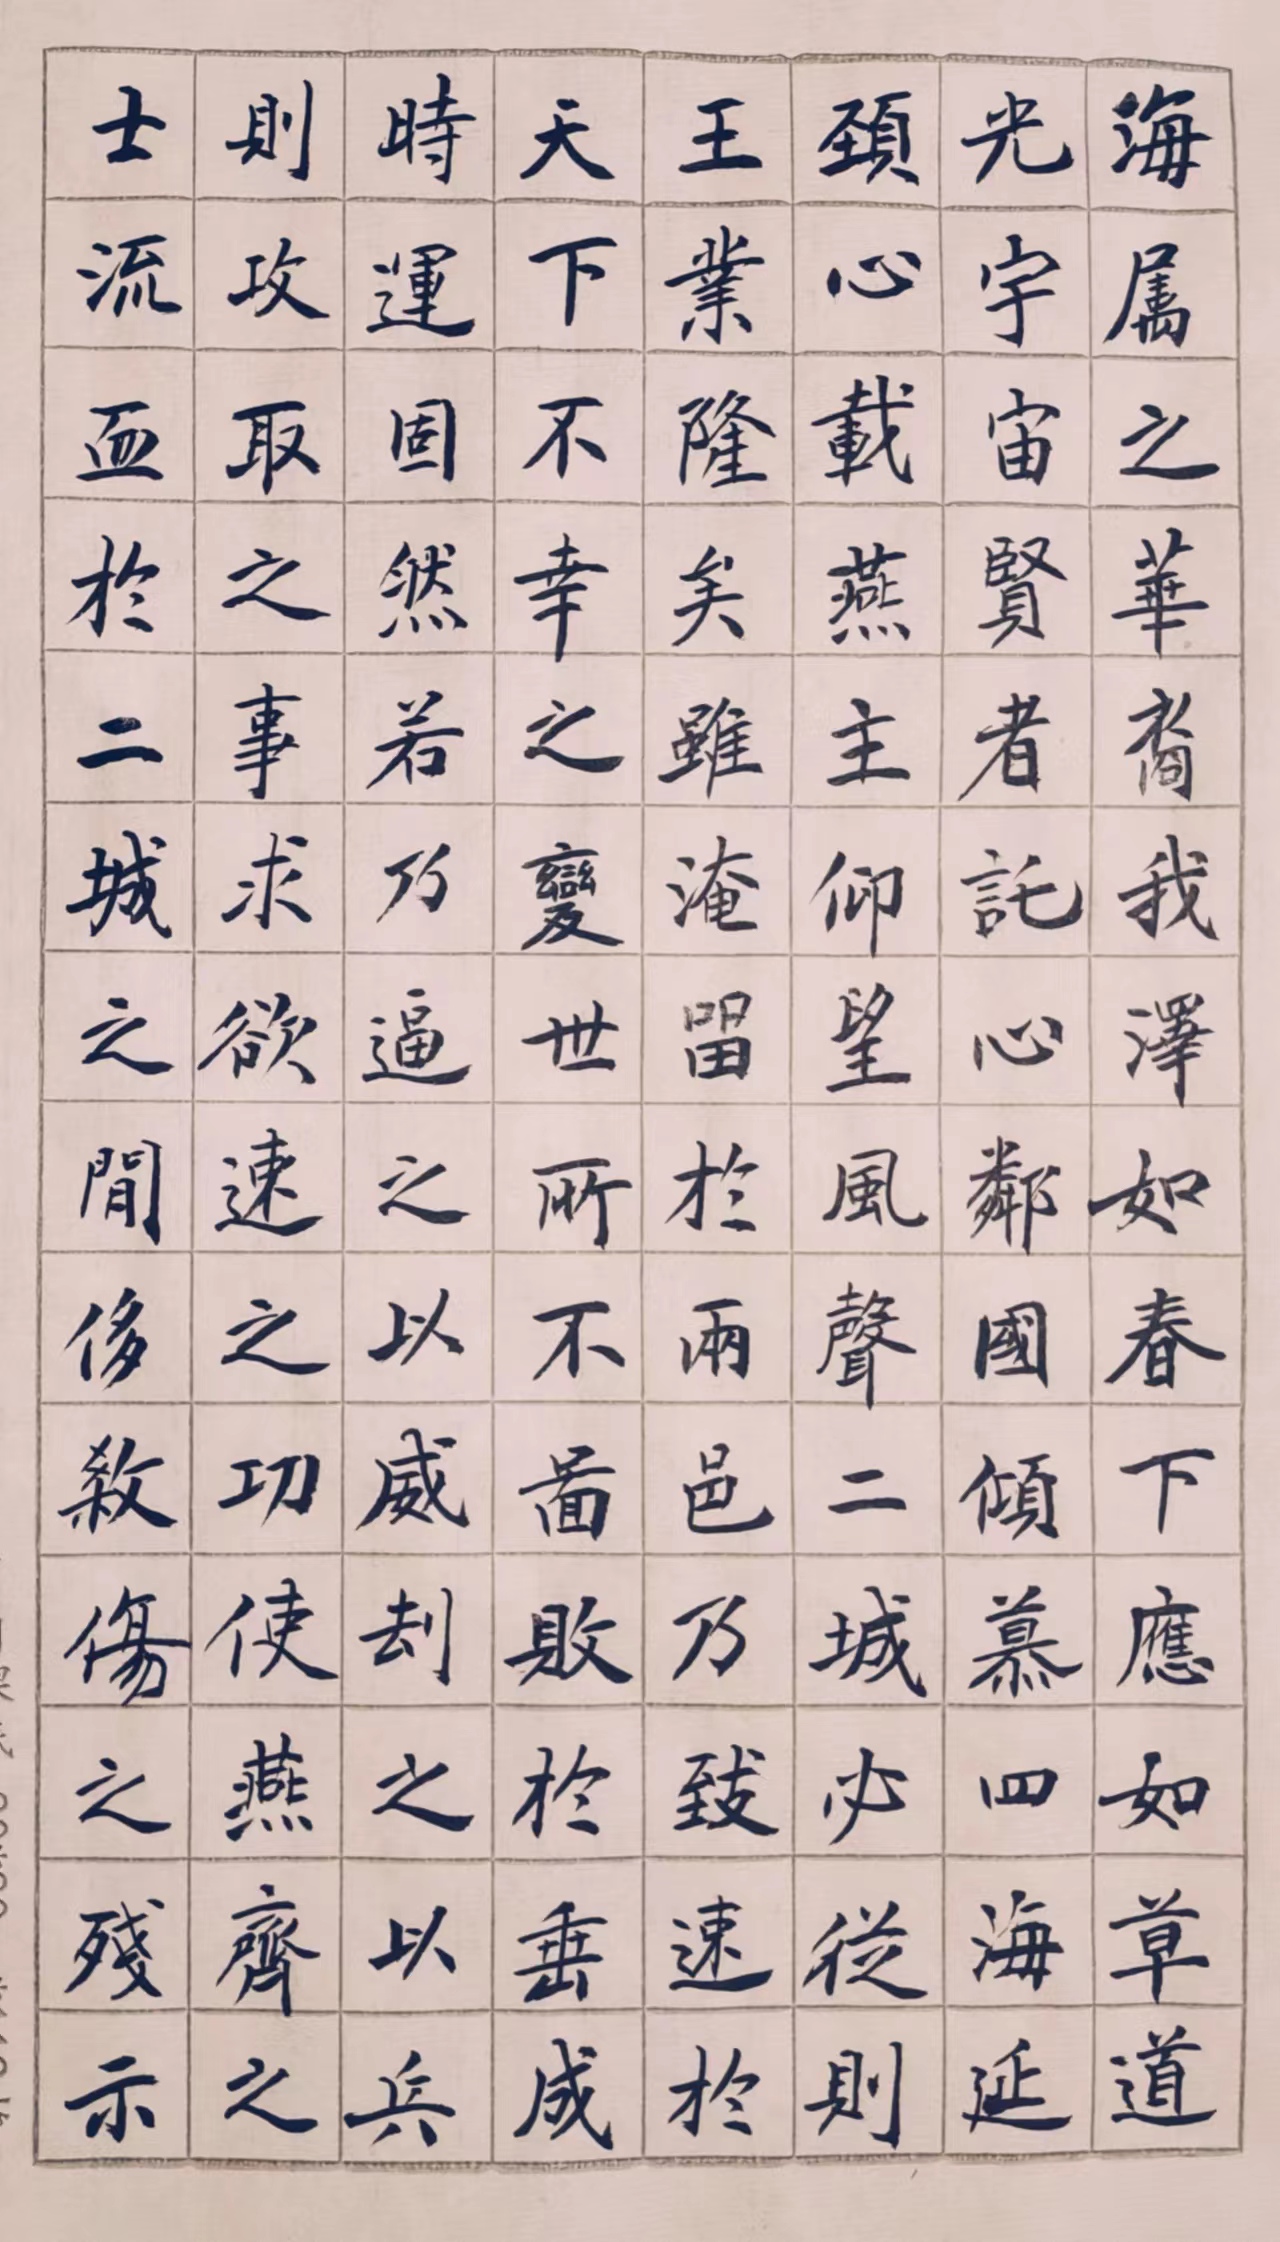 海属之華裔我澤如春下應如草道
光宇宙賢者託心鄰國傾慕四海延
頚心載燕主仰望風聲二城必從則
王業隆矣雖淹留於兩邑乃致速於
天下不幸之變世所不啚敗於垂成
時運固然若乃逼之以威刦之以兵
則攻取之事求欲速之功使燕齊之
士流血於二城之間侈敘傷之殘示